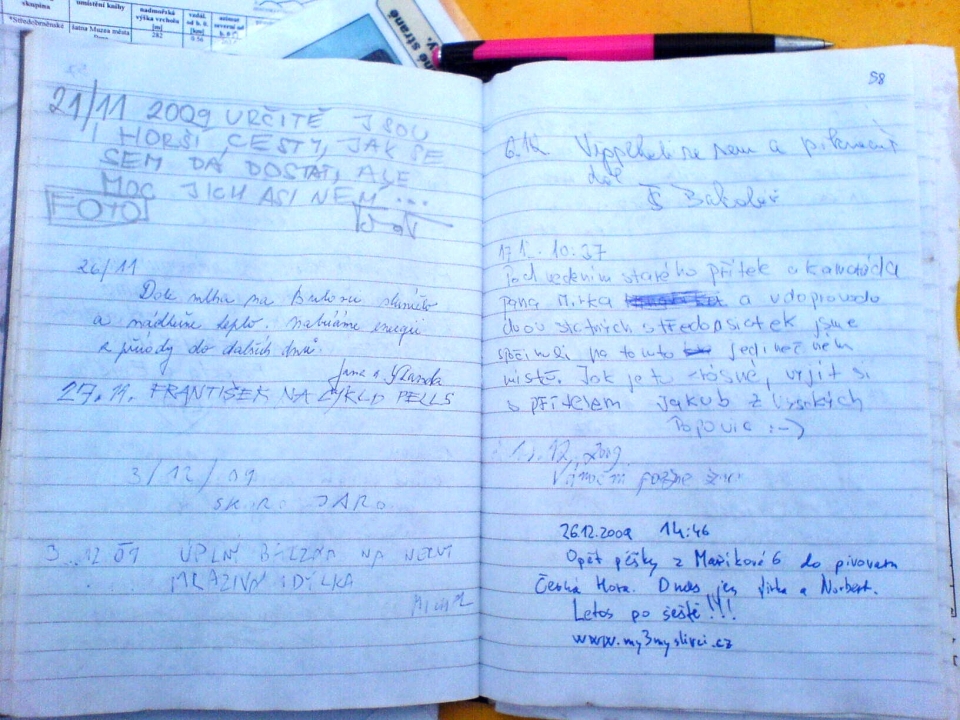 skupina
umístění knihy
nadmořská výška vrcholu [m]
vzdál. od b. 0. [km]
*Středobrněnská
šatna Muzea města
282
0.56
né straně
y.
58
21/11 2009 URČITĚ JSOU
I HORŠÍ CESTY, JAK SE
SEM DÁ DOSTAT, ALE
MOC JICH ASI NENÍ...
FOTO
26/11
Dole mlha na Bukovu sluníčko
a nádherné teplo. nabíráme energii
z přírody do dalších dnů.
Jana a Standa
27.11. FRANTIŠEK NA CYKLO PELLS
3/12/09
JARO
3.12.09 ÚPLNÝ BALZÁM NA NERVI
MRAZIVÁ IDILKA
6.12. se sem a
dál
17.12. 10:37
Pod vedením starého přítele a kamaráda
pana Mirka a v doprovodu
dvou statných středopsiček jsme
spočinuli na tomto jedinečném
místě. Jak je to krásné, vyjít si
s přítelem Jakub z Vysokých
Popovic :-)
12.2009
Vánoční
26.12.2009 14:46
Opět pěšky z Maříkové 6 do pivovaru
Černá Hora. Dnes jen Jirka a Norbert.
Letos po šesté!!!
www.my3myslivci.cz